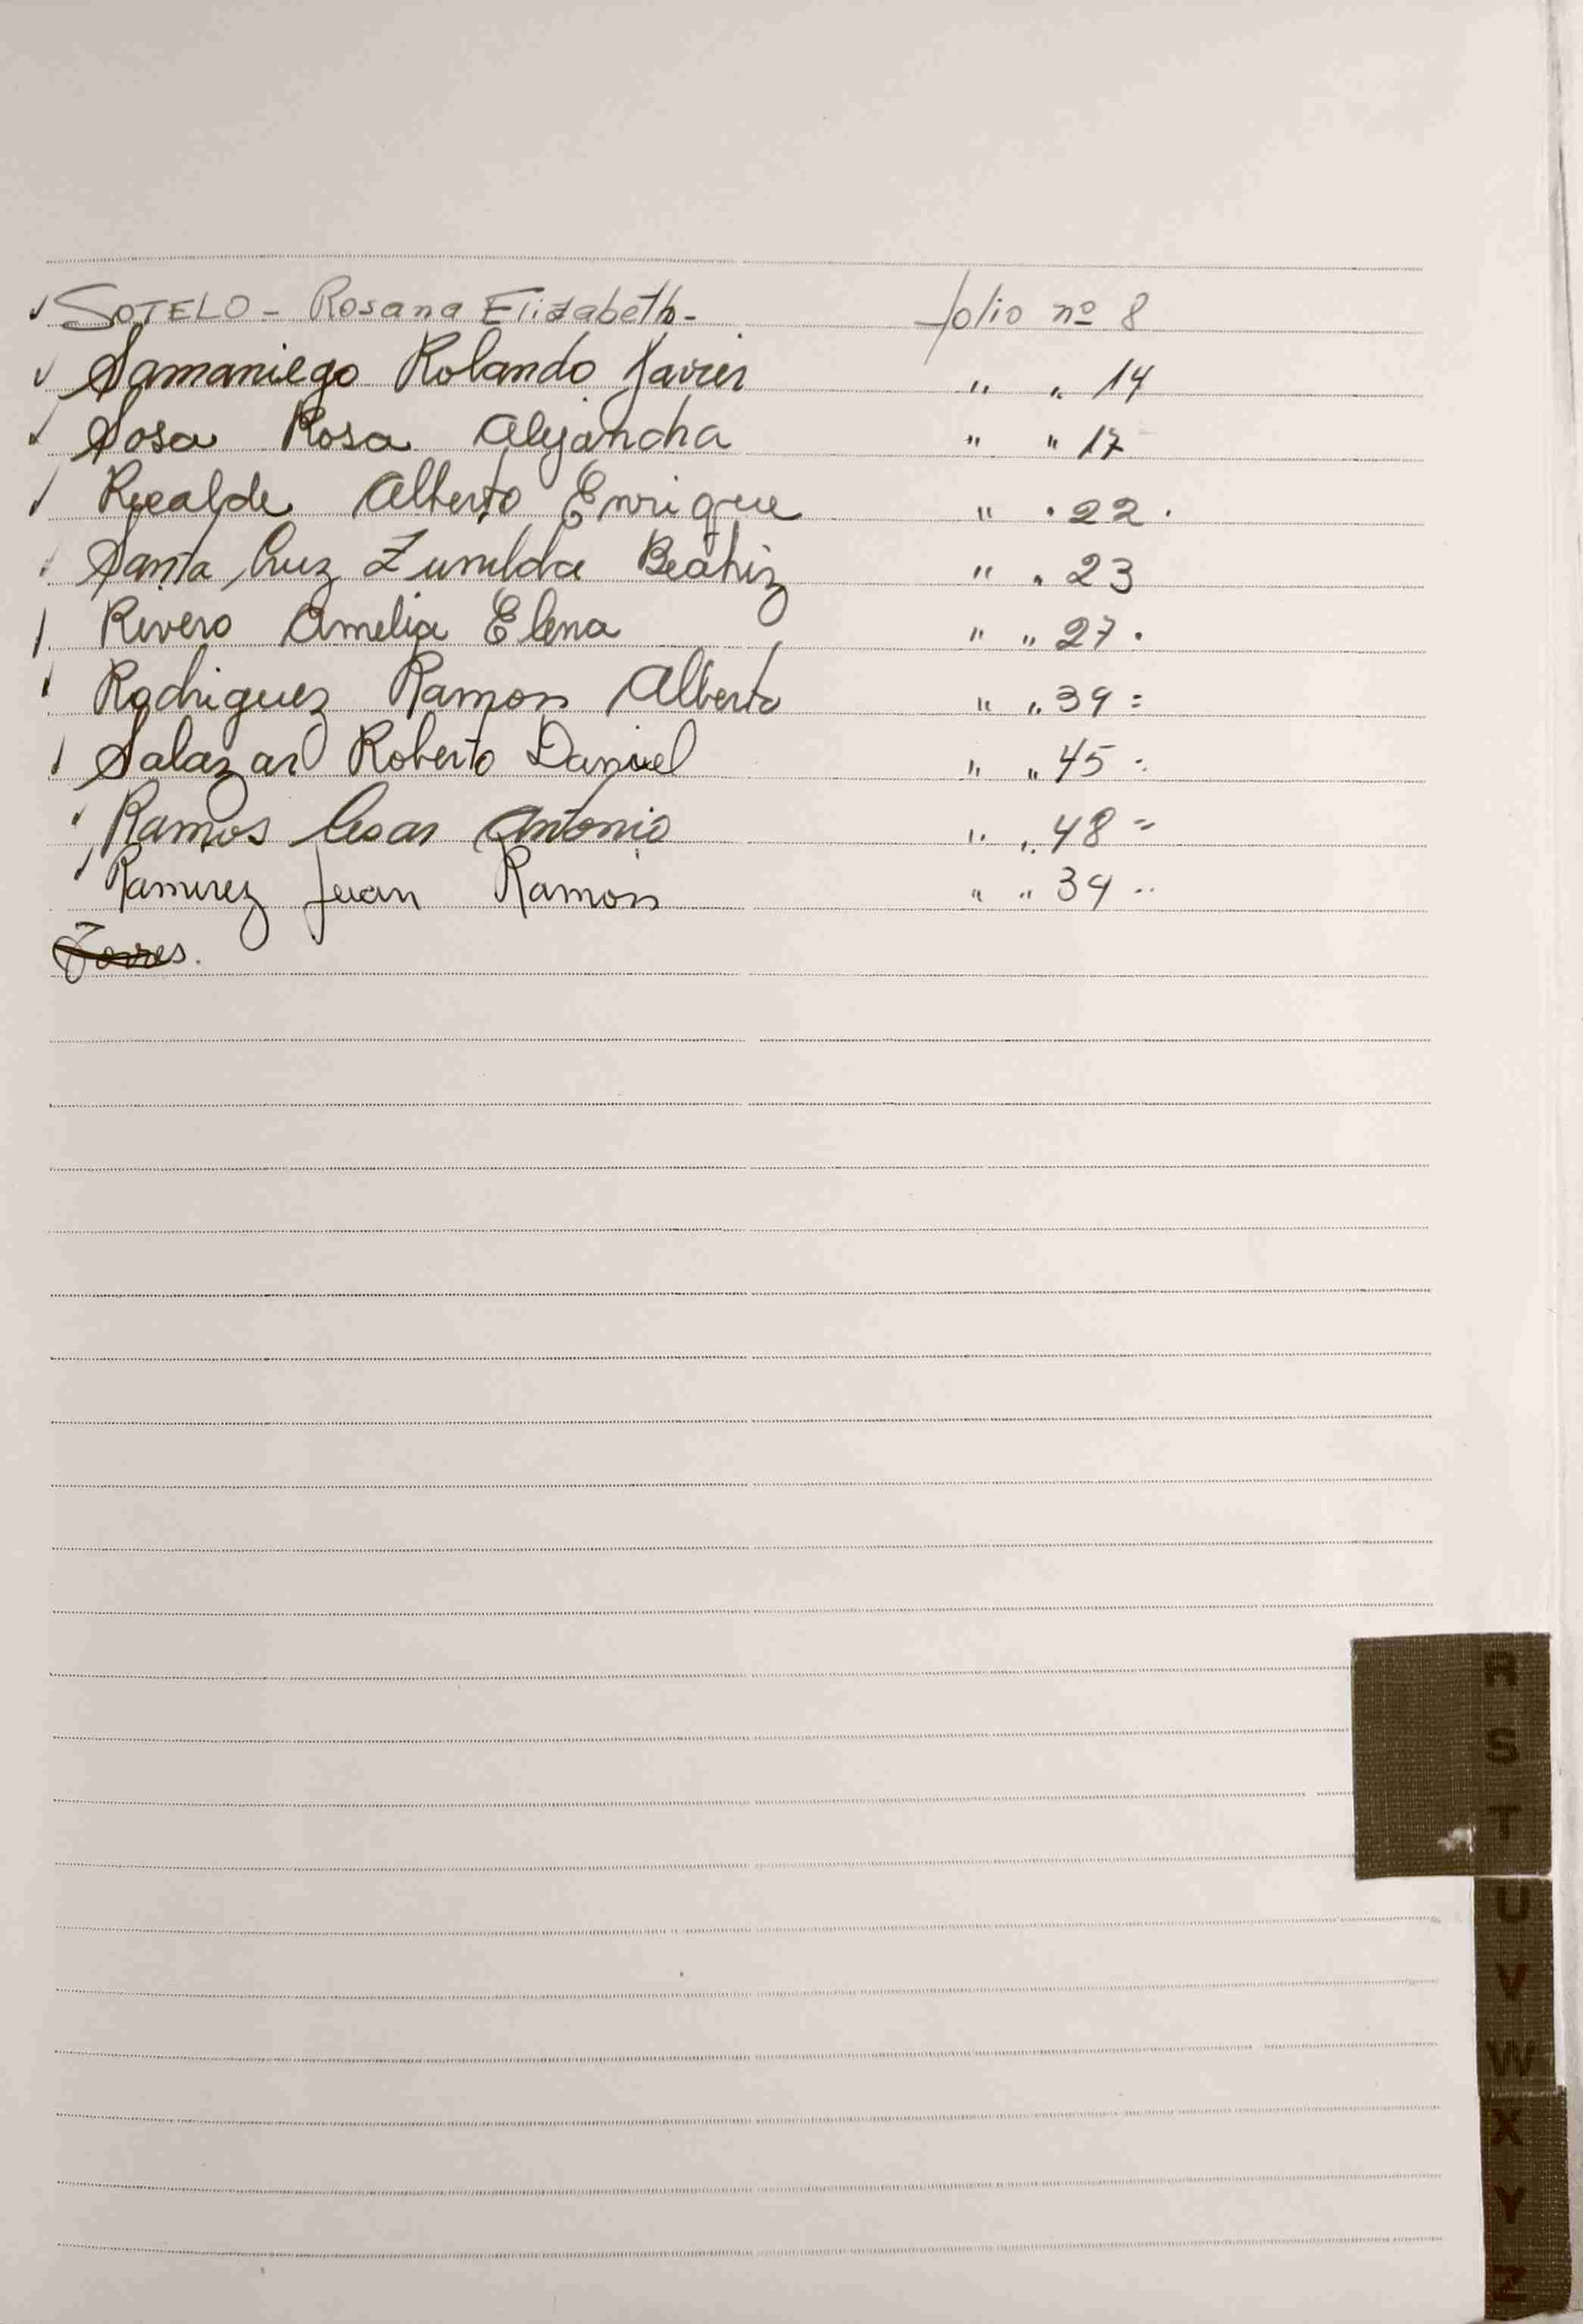 ✓ SOTELO - Rosana Elizabeth - folio nº 8
✓ Samaniego Rolando Javier " " 14
✓ Sosa Rosa Alejandra " " 17
✓ Recalde Alberto Enrique " " 22.
✓ Santa Cruz Zunilda Beatriz " " 23
✓ Rivero Amelia Elena " " 27.
✓ Rodriguez Ramon Alberto " " 39 =
✓ Salazar Roberto Daniel " " 45 =
✓ Ramos Cesar Antonio " " 48 =
✓ Ramirez Juan Ramon " " 34 ..
Torres.
R
S
T
U
V
W
X
Y
Z